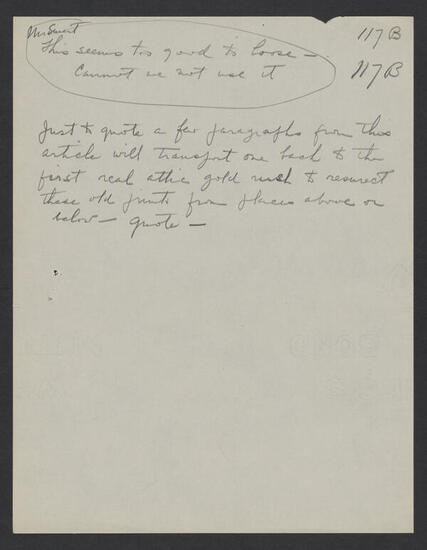 Mr Swert
This seems too good to loose –
Cannot we not use it
117 B
117 B
Just to quote a few paragraphs from this
article will transport one back to the
first real attic gold rush to resurect
these old prints from places above or
below – quote –